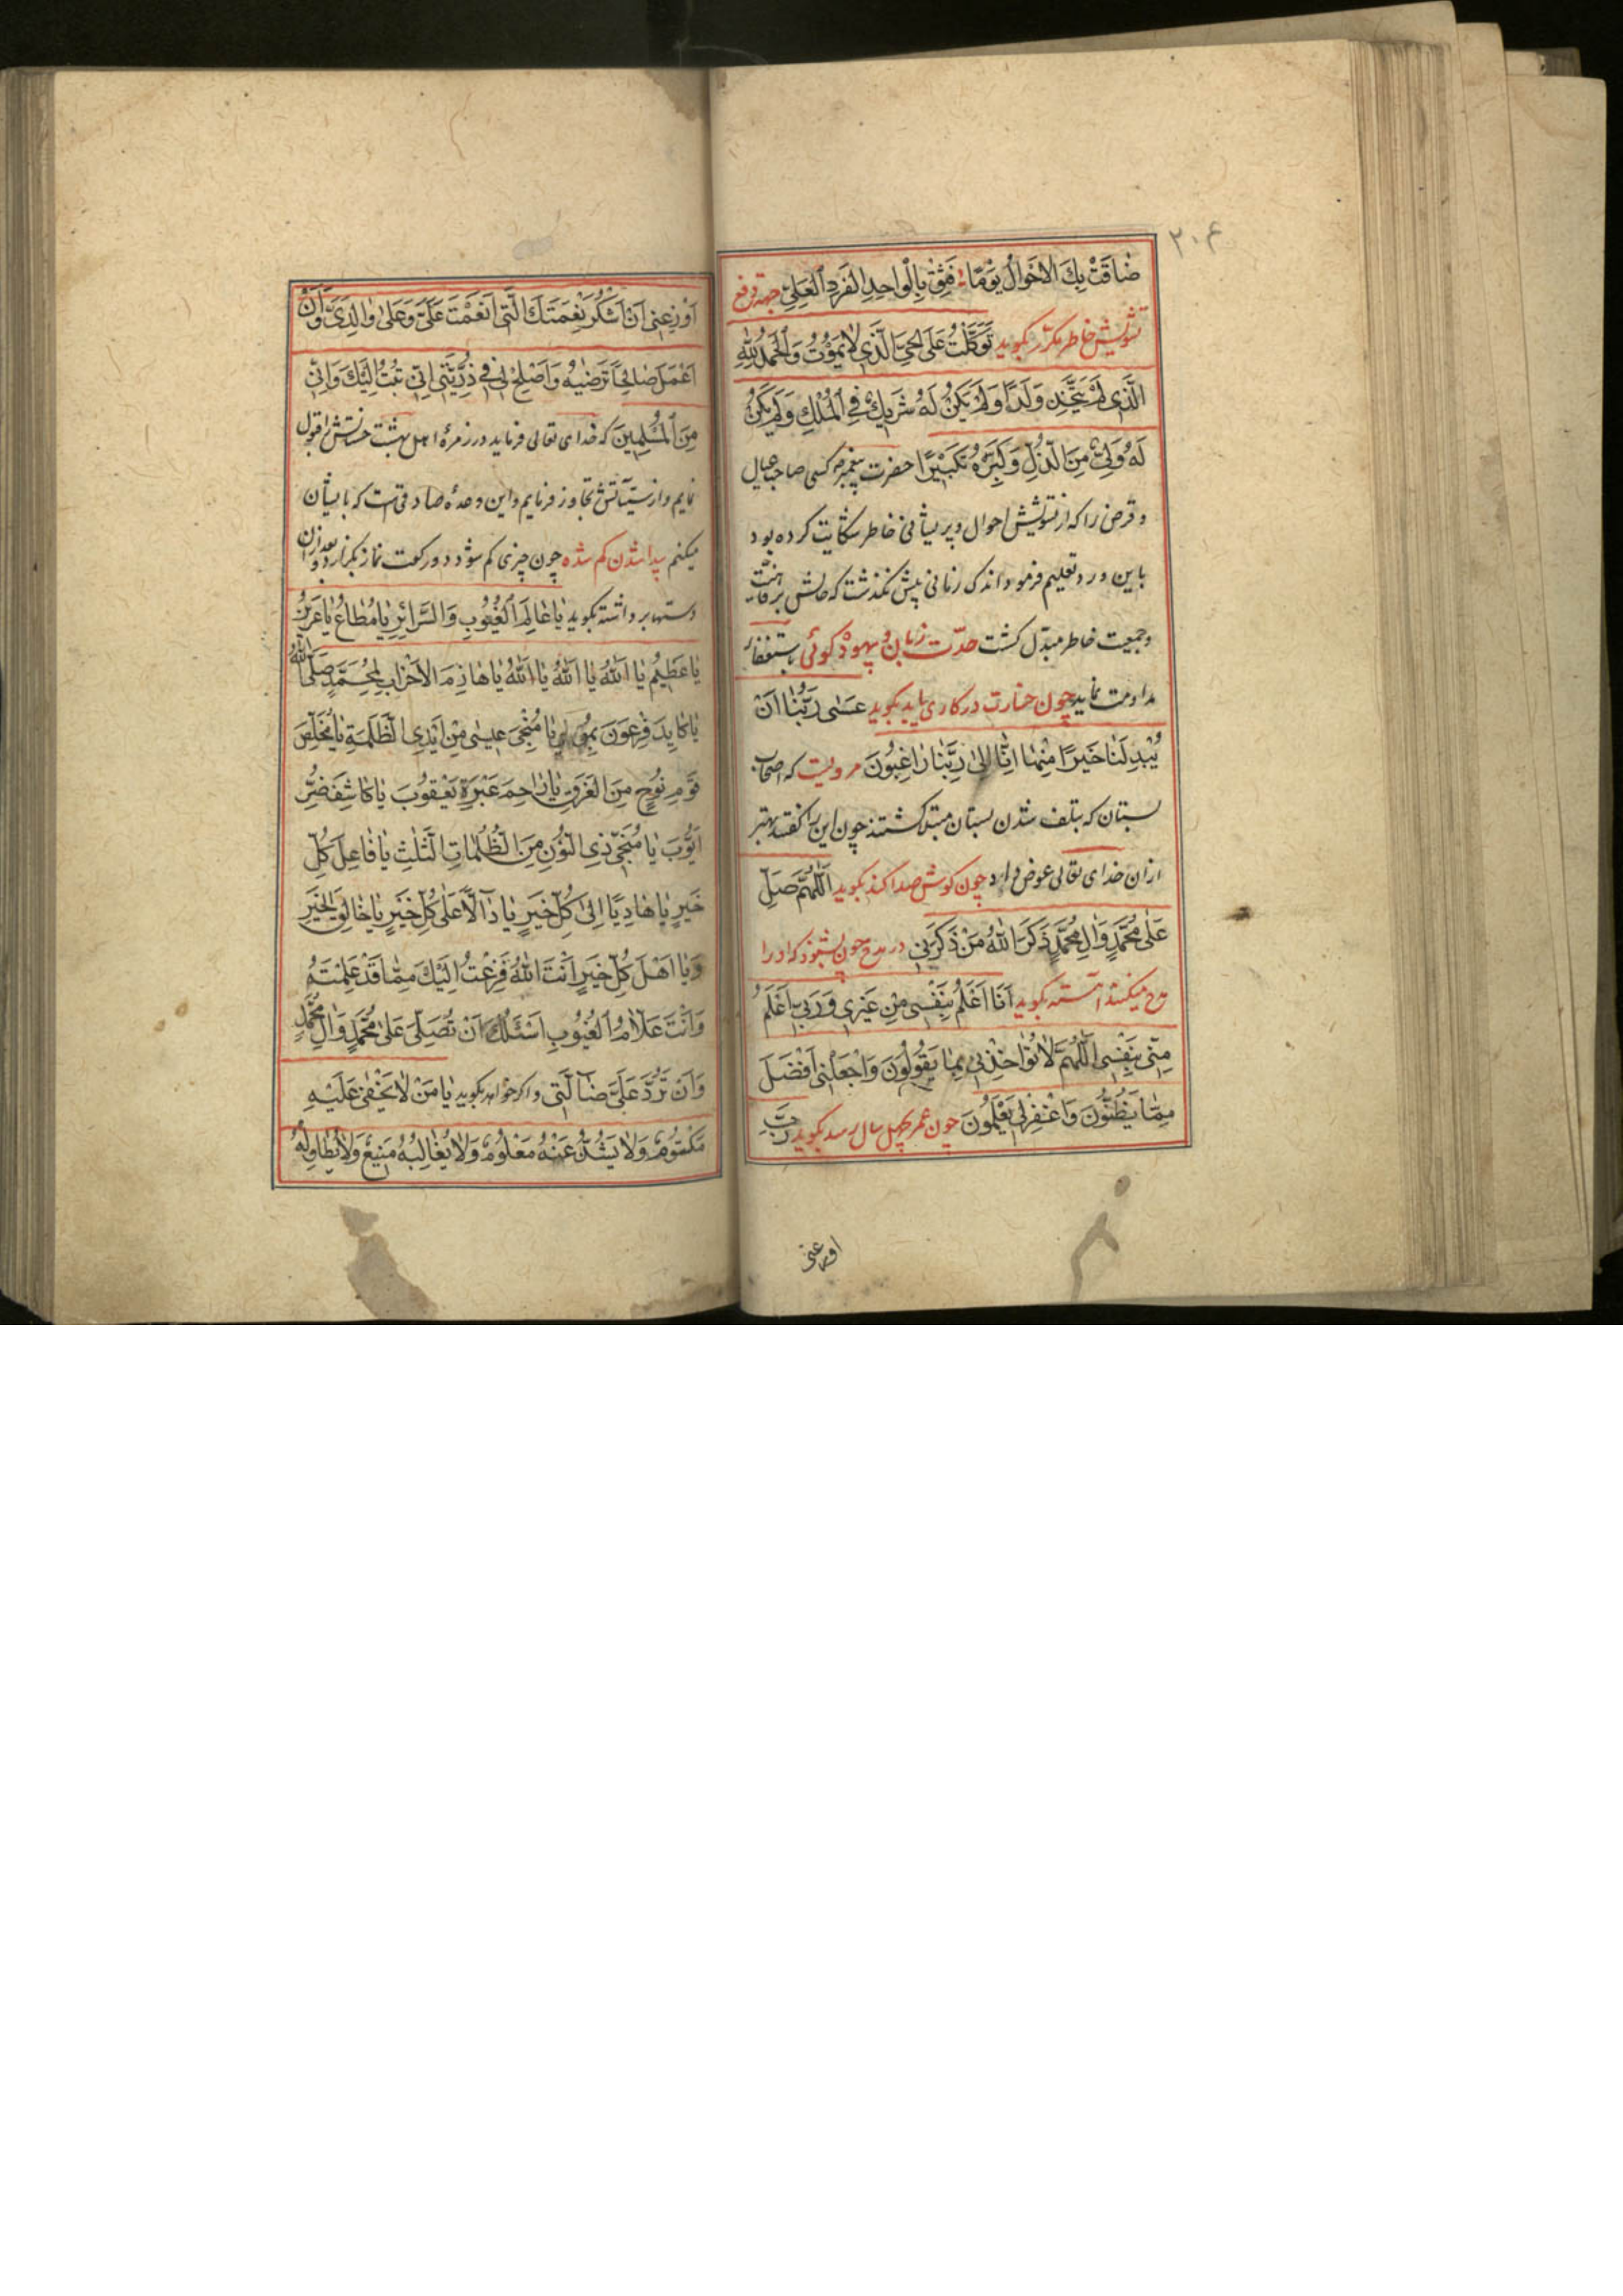 ۲۰۴
ضٰاقَتْ بِكَ الْاَحْوٰالُ يَوْمًا فَثِقْ بِالْوٰاحِدِ الْفَرْدِ الْعَلِيِّ جهة رفع
تشویش خاطر مکرّر بکوید تَوَكَّلْتُ عَلَى الْحَيِّ الَّذي لٰا يَمُوْتُ وَالْحَمْدُ لِلّٰهِ
الَّذي لَمْ يَتَّخِذْ وَلَدًا وَلَمْ يَكُنْ لَهُ شَرِيْكٌ فِي الْمُلْكِ وَلَمْ يَكُنْ
لَهُ وَلِيٌّ مِنَ الذُّلِّ وَكَبِّرْهُ تَكْبِيْرًا حضرت پیغمبر ص کسی صاحب عیال
و قرض را که از تشویش احوال و پریشانی خاطر شکایت کرده بود
باین ورد تعلیم فرمود اندک زمانی پیش نکذشت که حالش برفاهیّت
و جمعیت خاطر مبدّل کشت حدّت زبان و بیهوده کوئی باستغفار
مداومت نماید چون خسارت در کاری یابد بکوید عَسٰى رَبُّنٰا اَنْ
يُبْدِلَنٰا خَيْرًا مِنْهٰا اِنّٰا اِلىٰ رَبِّنٰا رٰاغِبُونَ مرویست که اصحاب
بستان که بتلف شدن بستان مبتلا کشتند چون این را کفتند بهتر
از ان خدای تعالی عوض داد چون کوش صدا کند بکوید اَللّٰهُمَّ صَلِّ
عَلٰى مُحَمَّدٍ وَاٰلِ مُحَمَّدٍ ذَكَرَ اللّٰهُ مَنْ ذَكَرَنِي در مدح چون بشنود که او را
مدح میکنند آهسته بکوید اَنَا اَعْلَمُ بِنَفْسِي مِنْ غَيْرِي وَرَبِّي اَعْلَمُ
مِنِّي بِنَفْسِي اَللّٰهُمَّ لٰا تُؤٰاخِذْنِي بِمٰا يَقُوْلُوْنَ وَاجْعَلْنِي اَفْضَلَ
مِمّٰا يَظُنُّوْنَ وَاغْفِرْلِي يَعْلَمُونَ چون عمر بچهل سال رسد بکوید رَبِّ
اوزعنی
اَوْزِعْنِي اَنْ اَشْكُرَ نِعْمَتَكَ الَّتِي اَنْعَمْتَ عَلَيَّ وَعَلىٰ وٰالِدَيَّ وَاَنْ
اَعْمَلَ صٰالِحًا تَرْضٰيهُ وَاَصْلِحْ لِي فِي ذُرِّيَّتِي اِنِّي تُبْتُ اِلَيْكَ وَاِنِّي
مِنَ الْمُسْلِمِينَ که خدای تعالی فرماید در زمرهٔ اهل بهشت حسناتش را قبول
نمایم و از سیّئاتش تجاوز فرمایم و این وعدهٔ صادقی است که بایشان
میکنم پیدا شدن کم شده چون چیزی کم شود دو رکعت نماز بکزارد و بعد از ان
دستها برداشته بکوید يٰا عٰالِمَ الْغُيُوْبِ وَالسَّرٰائِرِ يٰا مُطٰاعُ يٰا عَزِيْزُ
يٰا عَظِيْمُ يٰا اَللّٰهُ يٰا اَللّٰهُ يٰا اَللّٰهُ يٰا هٰازِمَ الْاَحْزٰابِ لِمُحَمَّدٍ صَلَّى اللّٰهُ
يٰا كٰايِدَ فِرْعَوْنَ بِمُوسٰى يٰا مُنْجِيَ عِيسٰى مِنْ اَيْدِي الظَّلَمَةِ يٰا مُخَلِّصَ
قَوْمِ نُوْحٍ مِنَ الْغَرَقِ يٰا رٰاحِمَ عَبْرَةِ يَعْقُوْبَ يٰا كٰاشِفَ ضُرِّ
اَيُّوْبَ يٰا مُنَجِّيَ ذِي النُّوْنِ مِنَ الظُّلُمٰاتِ الثَّلٰثِ يٰا فٰاعِلَ كُلِّ
خَيْرٍ يٰا هٰادِيًا اِلىٰ كُلِّ خَيْرٍ يٰا دٰالًّا عَلٰى كُلِّ خَيْرٍ يٰا خٰالِقَ الْخَيْرِ
وَيٰا اَهْلَ كُلِّ خَيْرٍ اَنْتَ اللّٰهُ فَزِعْتُ اِلَيْكَ مِمّٰا قَدْ عَلِمْتَهُ
وَاَنْتَ عَلّٰامُ الْغُيُوْبِ اَسْئَلُكَ اَنْ تُصَلِّيَ عَلىٰ مُحَمَّدٍ وَاٰلِ مُحَمَّدٍ
وَاَنْ تَرُدَّ عَلَيَّ ضٰالَّتِي و اکر خواهد بکوید يٰا مَنْ لٰا يَخْفٰى عَلَيْهِ
مَكْتُوْمٌ وَلٰا يَشُذُّ عَنْهُ مَعْلُوْمٌ وَلٰا يُغٰالِبُهُ مَنِيْعٌ وَلٰا يُطٰاوِلُهُ